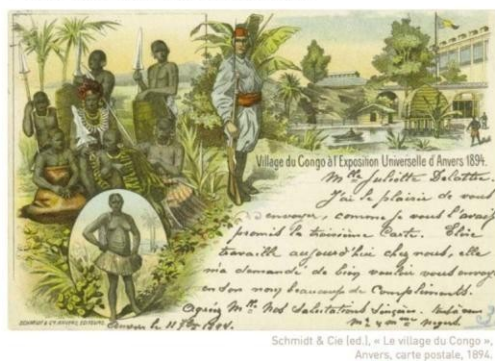 Village du Congo à l'Exposition Universelle d'Anvers 1894.
Mlle Juliette Delattre.
J'ai le plaisir de vous
envoyer, comme je vous l'avais
promis la troisième Carte. Elvie
travaille aujourd'hui chez nous, elle
m'a demandé de bien vouloir vous envoyer
en son nom beaucoup de Compliments.
Agréez Mlle Nos Salutations Sincères.
SCHMIDT & Cie ANVERS, EDITEURS
Anvers le 11
Schmidt & Cie (ed.), « Le village du Congo »,
Anvers, carte postale, 1894.